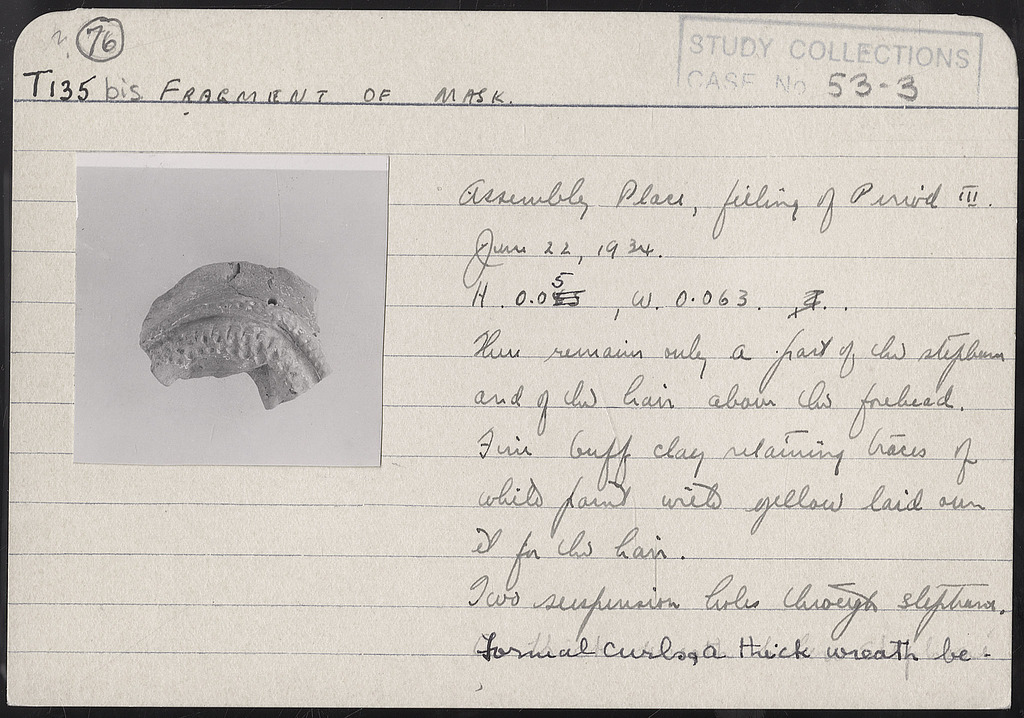 76
STUDY COLLECTIONS
CASE No 53-3
T135 bis FRAGMENT OF MASK.
Assembly Place, filling of Period III.
June 22, 1934.
H. 0.05, W. 0.063.
There remains only a part of the stephane
and of the hair above the forehead.
Fine buff clay retaining traces of
white paint with yellow laid over
it for the hair.
Two suspension holes through stephane.
Formal curls, a thick wreath be-